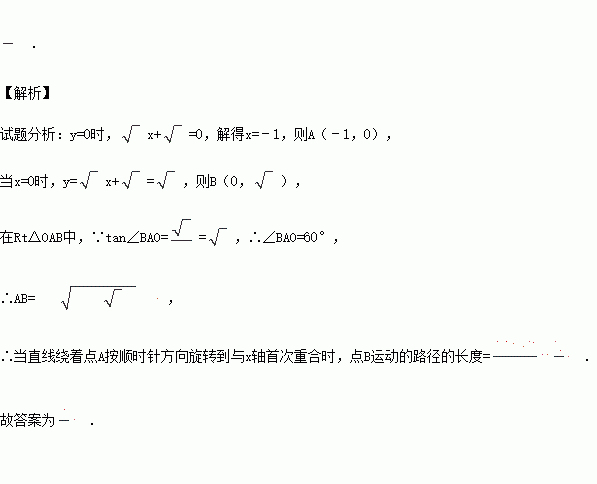 — .
【解析】
试题分析：y=0时，√ x+√ =0，解得x=﹣1，则A（﹣1，0），
当x=0时，y=√ x+√ =√ ，则B（0，√ ），
在Rt△OAB中，∵tan∠BAO=√ =√ ，∴∠BAO=60°，
∴AB=√ √ ，
∴当直线绕着点A按顺时针方向旋转到与x轴首次重合时，点B运动的路径的长度= .
故答案为— .